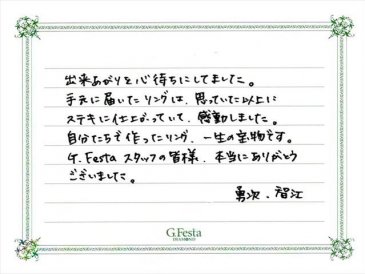 出来あがりを心待ちにしてました。
手元に届いたリングは、思っていた以上に
ステキに仕上がっていて、感動しました。
自分たちで作ったリング、一生の宝物です。
G.Festa スタッフの皆様、本当にありがとう
ございました。
勇次、智江
G.Festa
DIAMOND